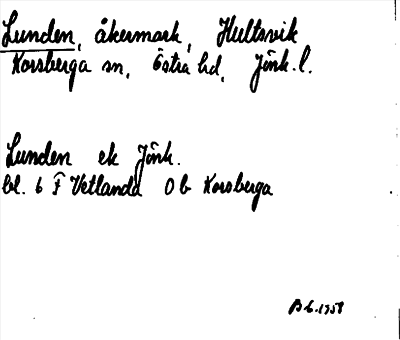 Lunden, åkermark, Hultsvik
Korsberga sn, Östra hd, Jönk. l.
Lunden ek Jönk.
bl. 6 F Vetlanda 0 b Korsberga
B L. 1958